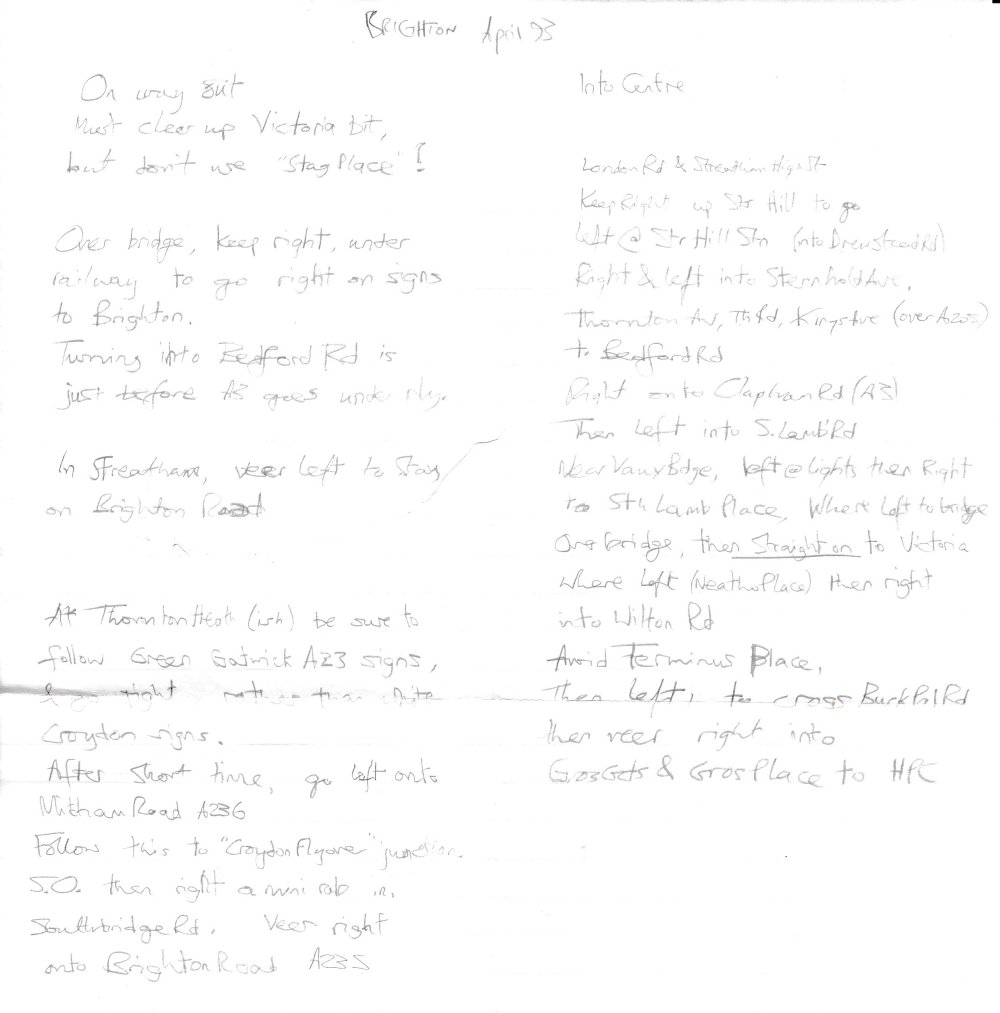 BRIGHTON April 93
On way out
Must clear up Victoria bit,
but don't use "Stag Place"!
Over bridge, keep right, under
railway to go right on signs
to Brighton.
Turning into Bedford Rd is
just before A3 goes under rly.
In Streatham, veer left to stay
on Brighton Road
At Thornton Heath (ish) be sure to
follow Green Gatwick A23 signs,
& go right rather than white
Croydon signs.
After short time, go left onto
Mitham Road A236
Follow this to "Croydon Flyover" junction.
S.O. then right @ mini rab in
Southbridge Rd. Veer right
onto Brighton Road A235
Into Centre
London Rd & Streatham High St
Keep Right up Str Hill to go
left @ Str Hill Stn (into Drewstead Rd)
Right & left into Sternhold Ave,
Thornton Av, Th Rd, Kings Ave (over A205)
to Bedford Rd
Right onto Clapham Rd (A3)
Then left into S. Lamb Rd
Near Vaux Bdge, left @ lights then Right
to Sth Lamb Place, Where left to bridge
Over bridge, then straight on to Victoria
where left (Neatho Place) then right
into Wilton Rd
Avoid Terminus Place,
Then left, to cross Buck Pal Rd
then veer right into
Gros Gdts & Gros Place to HPC